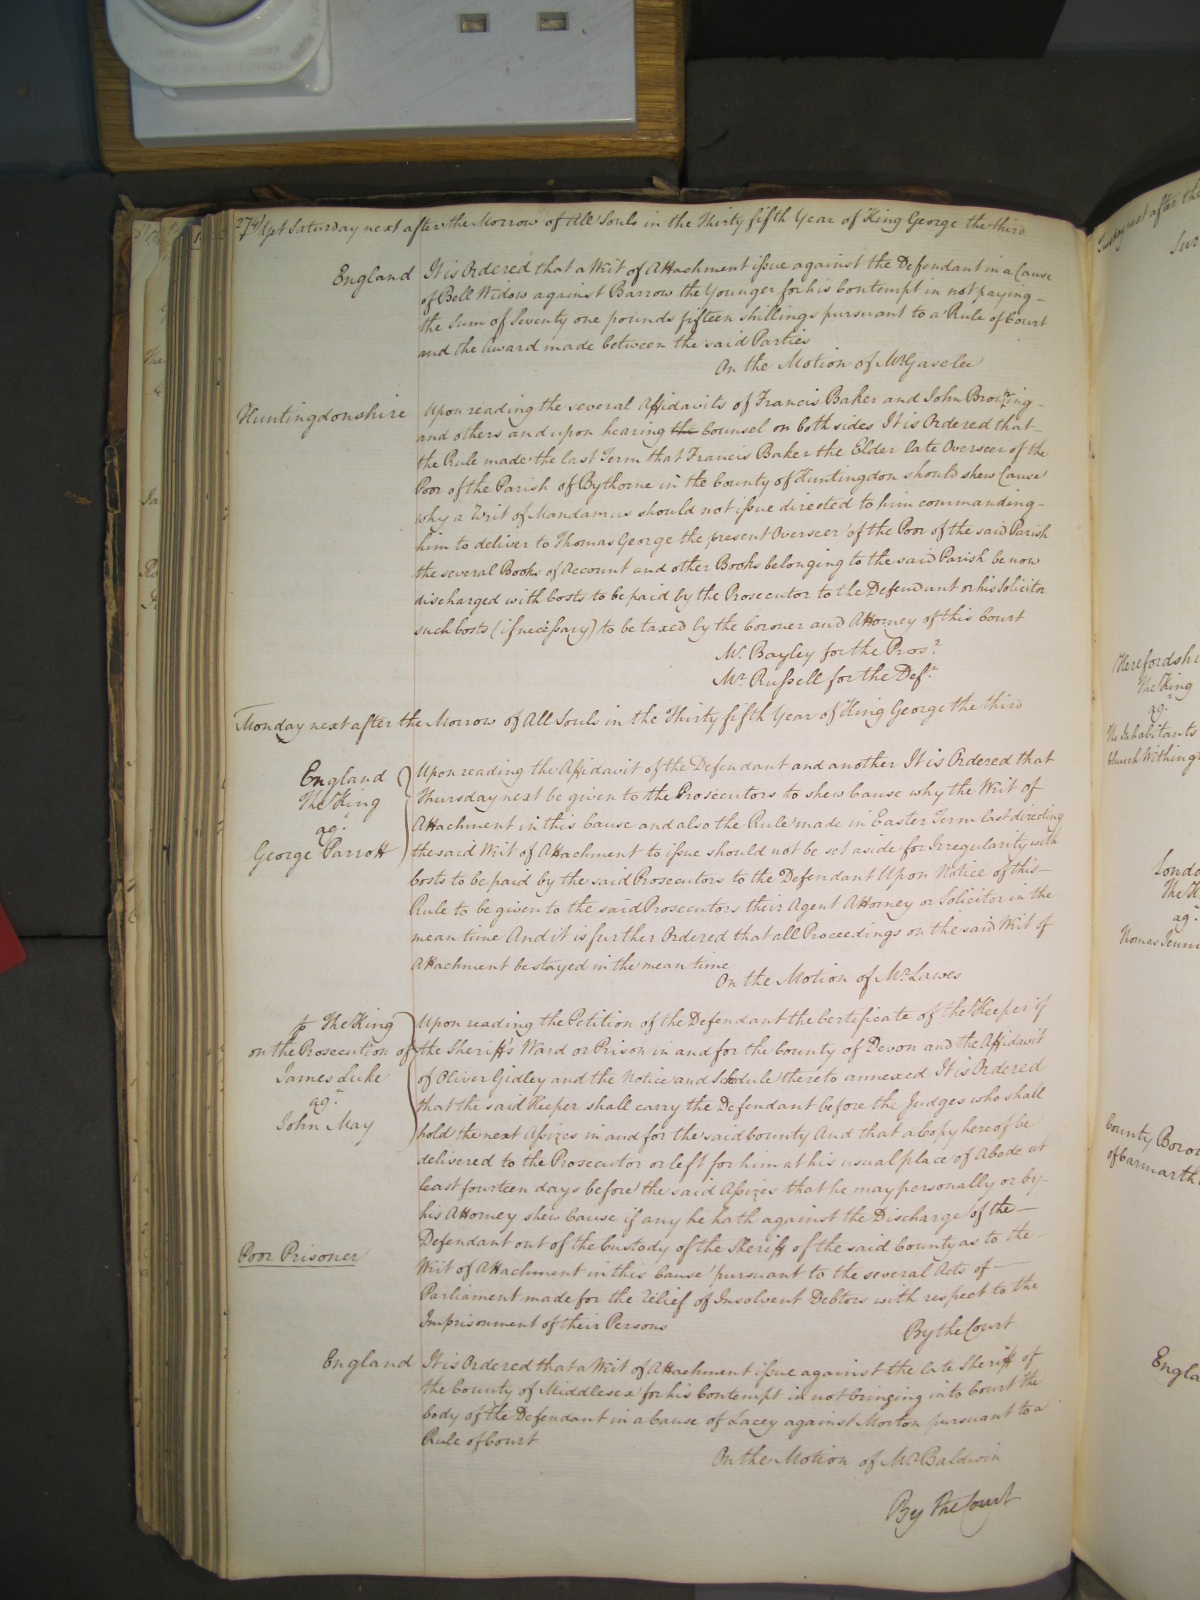 274 Yet Saturday next after the Morrow of All Souls in the Thirty fifth Year of King George the third
England It is Ordered that a Writ of Attachment issue against the Defendant in a Cause
of Bell Widow against Barrow the Younger for his Contempt in not paying
the Sum of Seventy one pounds fifteen shillings pursuant to a Rule of Court
and the Award made between the said Parties
On the Motion of Mr. Gaselee
Huntingdonshire Upon reading the several Affidavits of Francis Baker and John Browning
and others and upon hearing the Counsel on both sides It is Ordered that
the Rule made the last Term that Francis Baker the Elder late Overseer of the
Poor of the Parish of Bythorne in the County of Huntingdon should shew Cause
why a Writ of Mandamus should not issue directed to him commanding
him to deliver to Thomas George the present Overseer of the Poor of the said Parish
the several Books of Account and other Books belonging to the said Parish be now
discharged with Costs to be paid by the Prosecutor to the Defendant or his Solicitor
such Costs (if necessary) to be taxed by the Coroner and Attorney of this Court
Mr. Bayley for the Prosr.
Mr. Russell for the Deft.
Monday next after the Morrow of All Souls in the Thirty fifth Year of King George the third
England
The King
agt.
George Parrott
Upon reading the Affidavit of the Defendant and another It is Ordered that
Thursday next be given to the Prosecutors to shew Cause why the Writ of
Attachment in this Cause and also the Rule made in Easter Term last directing
the said Writ of Attachment to issue should not be set aside for Irregularity with
Costs to be paid by the said Prosecutors to the Defendant Upon Notice of this
Rule to be given to the said Prosecutors their Agent Attorney or Solicitor in the
mean time And it is further Ordered that all Proceedings on the said Writ of
Attachment be stayed in the mean time
On the Motion of Mr. Lawes
The King
on the Prosecution of
James Luke
agt.
John May
Poor Prisoner
Upon reading the Petition of the Defendant the Certificate of the Keeper of
the Sheriff's Ward or Prison in and for the County of Devon and the Affidavit
of Oliver Gidley and the Notice and Schedule thereto annexed It is Ordered
that the said Keeper shall carry the Defendant before the Judges who shall
hold the next Assizes in and for the said County And that a Copy hereof be
delivered to the Prosecutor or left for him at his usual place of Abode at
least fourteen days before the said Assizes that he may personally or by
his Attorney shew Cause if any he hath against the Discharge of the
Defendant out of the Custody of the Sheriff of the said County as to the
Writ of Attachment in this Cause pursuant to the several Acts of
Parliament made for the relief of Insolvent Debtors with respect to the
Imprisonment of their Persons
By the Court
England It is Ordered that a Writ of Attachment issue against the late Sheriff of
the County of Middlesex for his Contempt in not bringing into Court the
body of the Defendant in a Cause of Lacey against Morton pursuant to a
Rule of Court
On the Motion of Mr. Baldwin
By the Court
next after the
Herefordshi
The King
agt.
The Inhabitants
Church Withing
Londo
The K
agt.
County Borou
of Carmarth
Engla